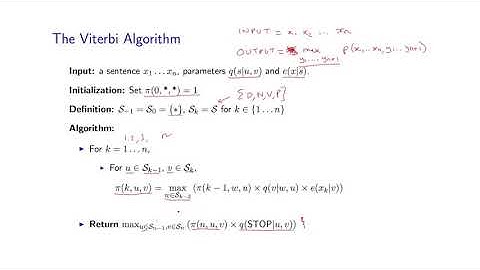 The Viterbi Algorithm
INPUT = x₁ x₂ ... xₙ
OUTPUT = max p(x₁...xₙ, y₁...yₙ₊₁)
y₁...yₙ₊₁
Input: a sentence x₁ . . . xₙ, parameters q(s|u, v) and e(x|s).
Initialization: Set π(0, *, *) = 1
{D,N,V,P}
Definition: S₋₁ = S₀ = {*}, Sₖ = S for k ∈ {1 . . . n}
Algorithm:
1, 2, 3, n
▶ For k = 1 . . . n,
▶ For u ∈ Sₖ₋₁, v ∈ Sₖ,
π(k, u, v) = max (π(k − 1, w, u) × q(v|w, u) × e(xₖ|v))
w∈Sₖ₋₂
▶ Return max u∈Sₙ₋₁,v∈Sₙ (π(n, u, v) × q(STOP|u, v))